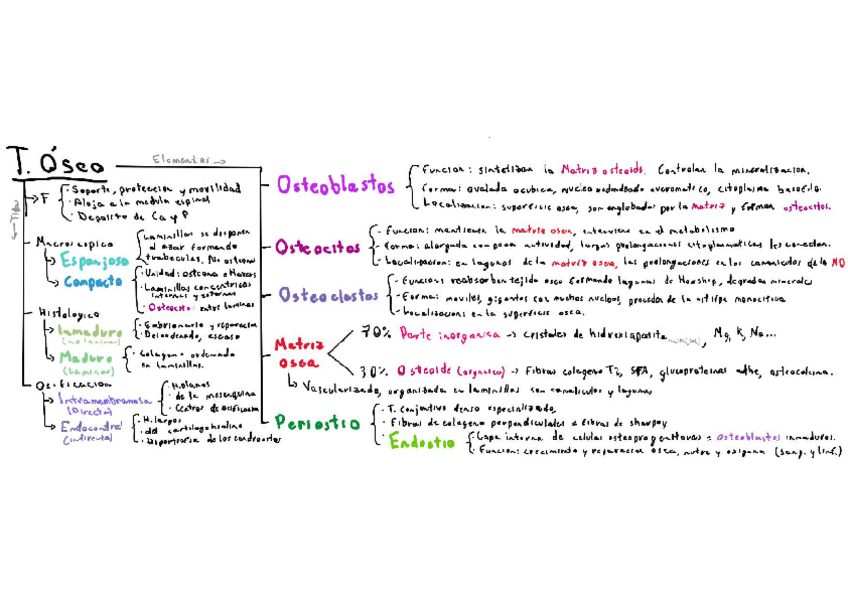 T. Óseo
Elementos →
← Tipos
→ F
· Soporte, protección y movilidad
· Aloja a la medula espinal
· Deposito de Ca y P
Macroscopico
Esponjoso
Laminillas se disponen
al azar formando
trabeculas. No osteona
Compacto
· Unidad: osteona o Havers
· Laminillas concentricas
internas y externas
· Osteocito: entre laminas
Histologico
Inmaduro
(no laminar)
· Embrionario y reparacion
· Desordenado, escaso
Maduro
(Laminar)
· Colageno ordenado
en laminillas.
Osificación
Intramembranosa
(Directa)
· H. planos
· de la mesenquima
· Centros de osificacion
Endocondral
(indirecta)
· H. largos
· del cartilago hialino
Osteoblastos
Funcion: sintetizan la Matriz osteoide. Controlan la mineralizacion.
Forma: ovalada o cubica, nucleo redondeado eucromatico, citoplasma basofilo.
Localizacion: superficie osea, son englobados por la matriz y forman osteocitos.
Osteocitos
· Funcion: mantienen la matriz osea, intervienen en el metabolismo
· Forma: alargada con poca actividad, largas prolongaciones citoplasmaticas les conectan.
· Localizacion: en lagunas de la matriz osea, las prolongaciones en los canaliculos de la MO
Osteoclastos
· Funcion: reabsorben tejido oseo formando lagunas de Howship, degradan minerales
· Forma: moviles, gigantes con muchos nucleos, proceden de la estirpe monocitica
· Localizacion: en la superficie osea.
Matriz
osea
70% Parte inorganica → cristales de hidroxiapatita, Mg, K, Na...
30% Osteoide (organica) → Fibras colageno T1, SFA, glucoproteinas adhe, osteocalcina.
↳ Vascularizada, organizada en laminillas con canaliculos y lagunas
Periostio
· T. Conjuntivo denso especializado,
· Fibras de colageno perpendiculares = fibras de sharpey
Endostio
· Capa interna de celulas osteoprogenitoras = Osteoblastos inmaduros.
· Funcion: crecimiento y reparacion osea, nutre y oxigena (Sang. y linf.)